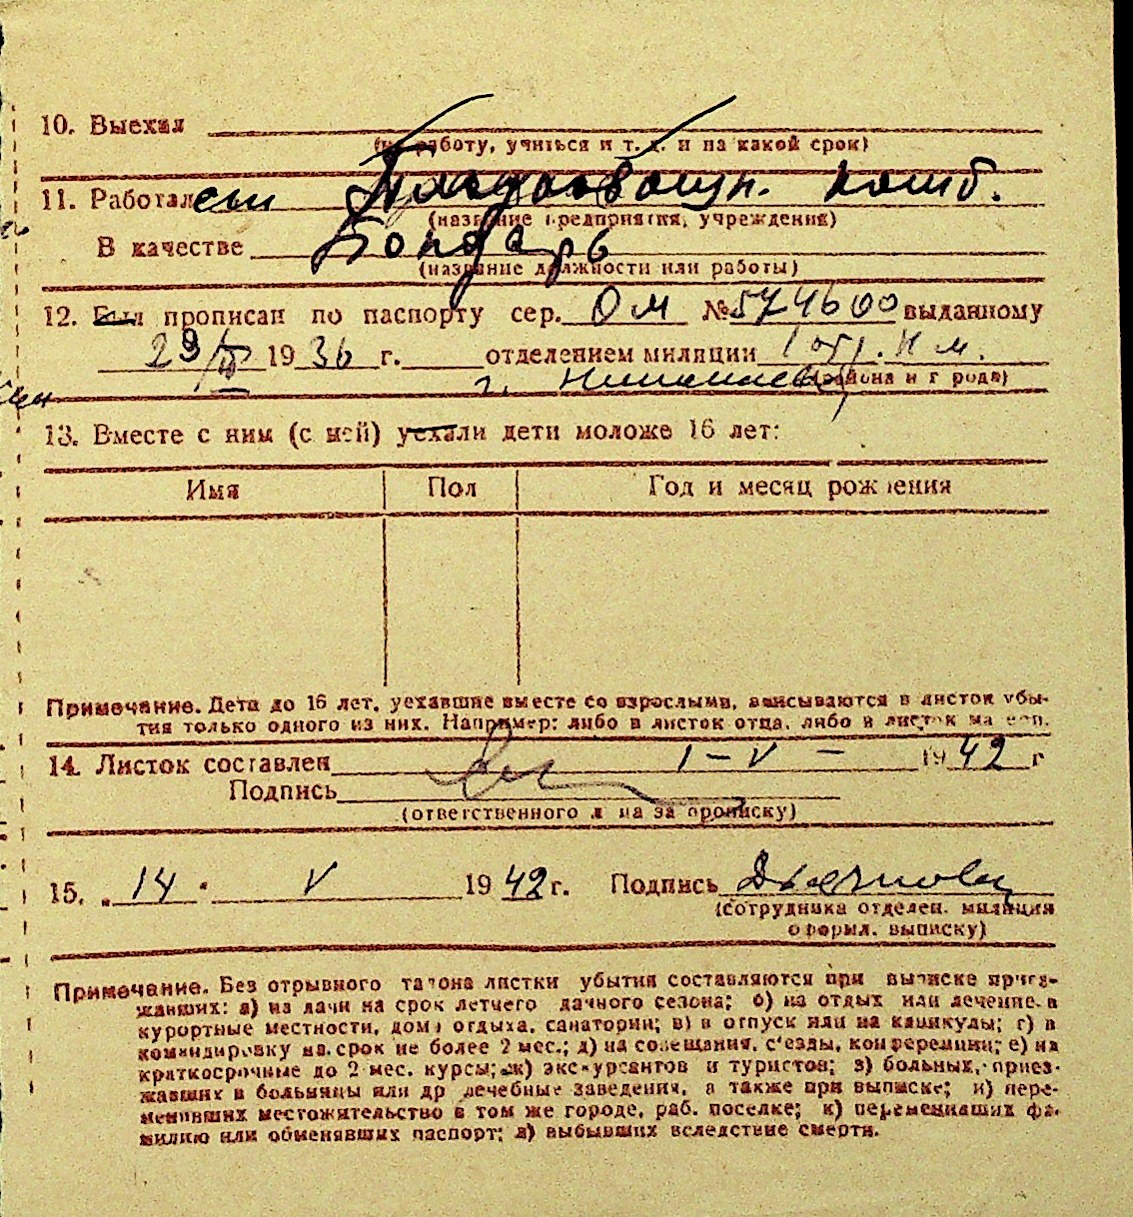 10. Выехал
(на работу, учиться и т. д. и на какой срок)
11. Работал
(название предприятия, учреждения)
В качестве Бондарь
(название должности или работы)
12. Был прописан по паспорту сер. ОМ № 574600 выданному
29/IV 1936 г. отделением милиции 1 отд. Н М.
г. (района и города)
13. Вместе с ним (с ней) уехали дети моложе 16 лет:
Имя Пол Год и месяц рождения
Примечание. Дети до 16 лет, уехавшие вместе со взрослыми, вписываются в листок убы-
тия только одного из них. Например: либо в листок отца, либо в листок матери.
14. Листок составлен 1-V- 1942 г
Подпись
(ответственного лица за прописку)
15. „14" V 1942 г. Подпись
(сотрудника отделен. милиции
оформл. выписку)
Примечание. Без отрывного талона листки убытия составляются при выписке приез-
жавших: а) на дачи на срок летнего дачного сезона; б) на отдых или лечение в
курортные местности, дома отдыха, санатории; в) в отпуск или на каникулы; г) в
командировку на срок не более 2 мес.; д) на совещания, с'езды, конференции; е) на
краткосрочные до 2 мес. курсы; ж) экскурсантов и туристов; з) больных, приез-
жавших в больницы или др лечебные заведения, а также при выписке; и) пере-
менивших местожительство в том же городе, раб. поселке; к) переменивших фа-
милию или обменявших паспорт; л) выбывших вследствие смерти.